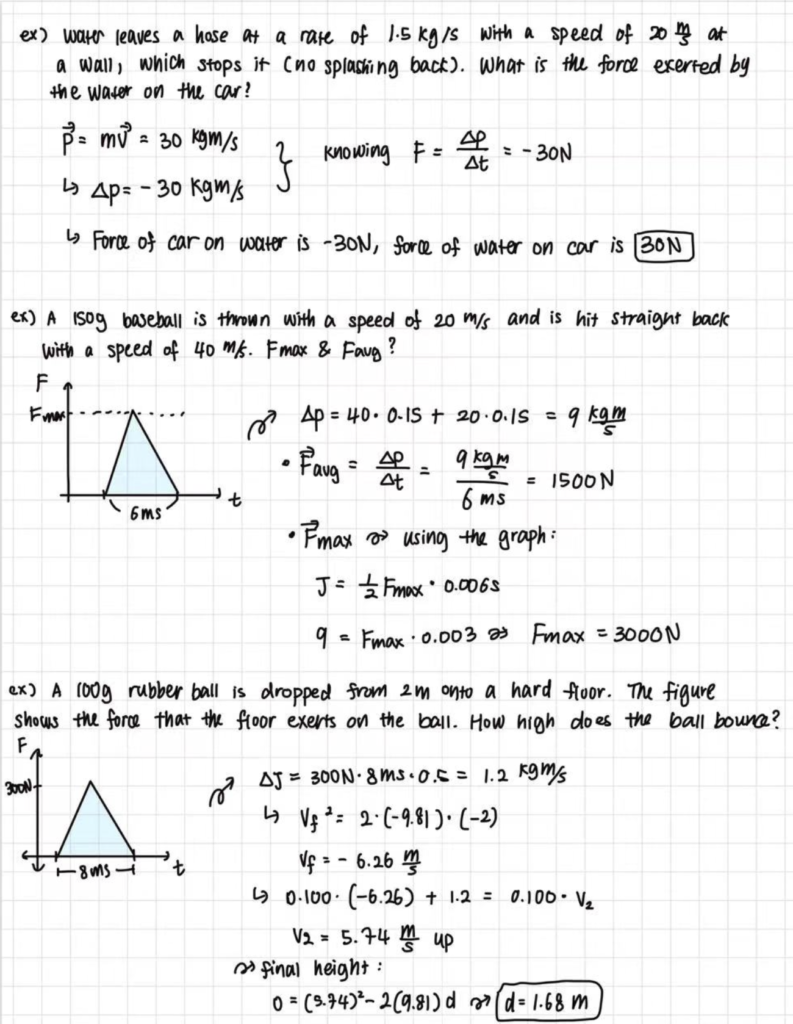 ex) Water leaves a hose at a rate of 1.5 kg/s with a speed of 20 m/s at
a wall, which stops it (no splashing back). What is the force exerted by
the water on the car?
p⃗ = mv⃗ = 30 kgm/s
↳ Δp = - 30 kgm/s
} knowing F = Δp/Δt = - 30N
↳ Force of car on water is -30N, force of water on car is 30N
ex) A 150g baseball is thrown with a speed of 20 m/s and is hit straight back
with a speed of 40 m/s. Fmax & Favg?
F
Fmax
6ms
t
Δp = 40 · 0.15 + 20 · 0.15 = 9 kgm/s
• F⃗avg = Δp/Δt = 9 kgm/s / 6 ms = 1500N
• F⃗max ⇝ using the graph:
J = 1/2 Fmax · 0.006s
9 = Fmax · 0.003 ⇝ Fmax = 3000N
ex) A 100g rubber ball is dropped from 2m onto a hard floor. The figure
shows the force that the floor exerts on the ball. How high does the ball bounce?
F
300N
8ms
t
ΔJ = 300N · 8ms · 0.5 = 1.2 kgm/s
↳ Vf² = 2·(-9.81)·(-2)
Vf = - 6.26 m/s
↳ 0.100 · (-6.26) + 1.2 = 0.100 · V₂
V2 = 5.74 m/s up
⇝ final height:
0 = (5.74)² - 2(9.81)d ⇝ d = 1.68 m